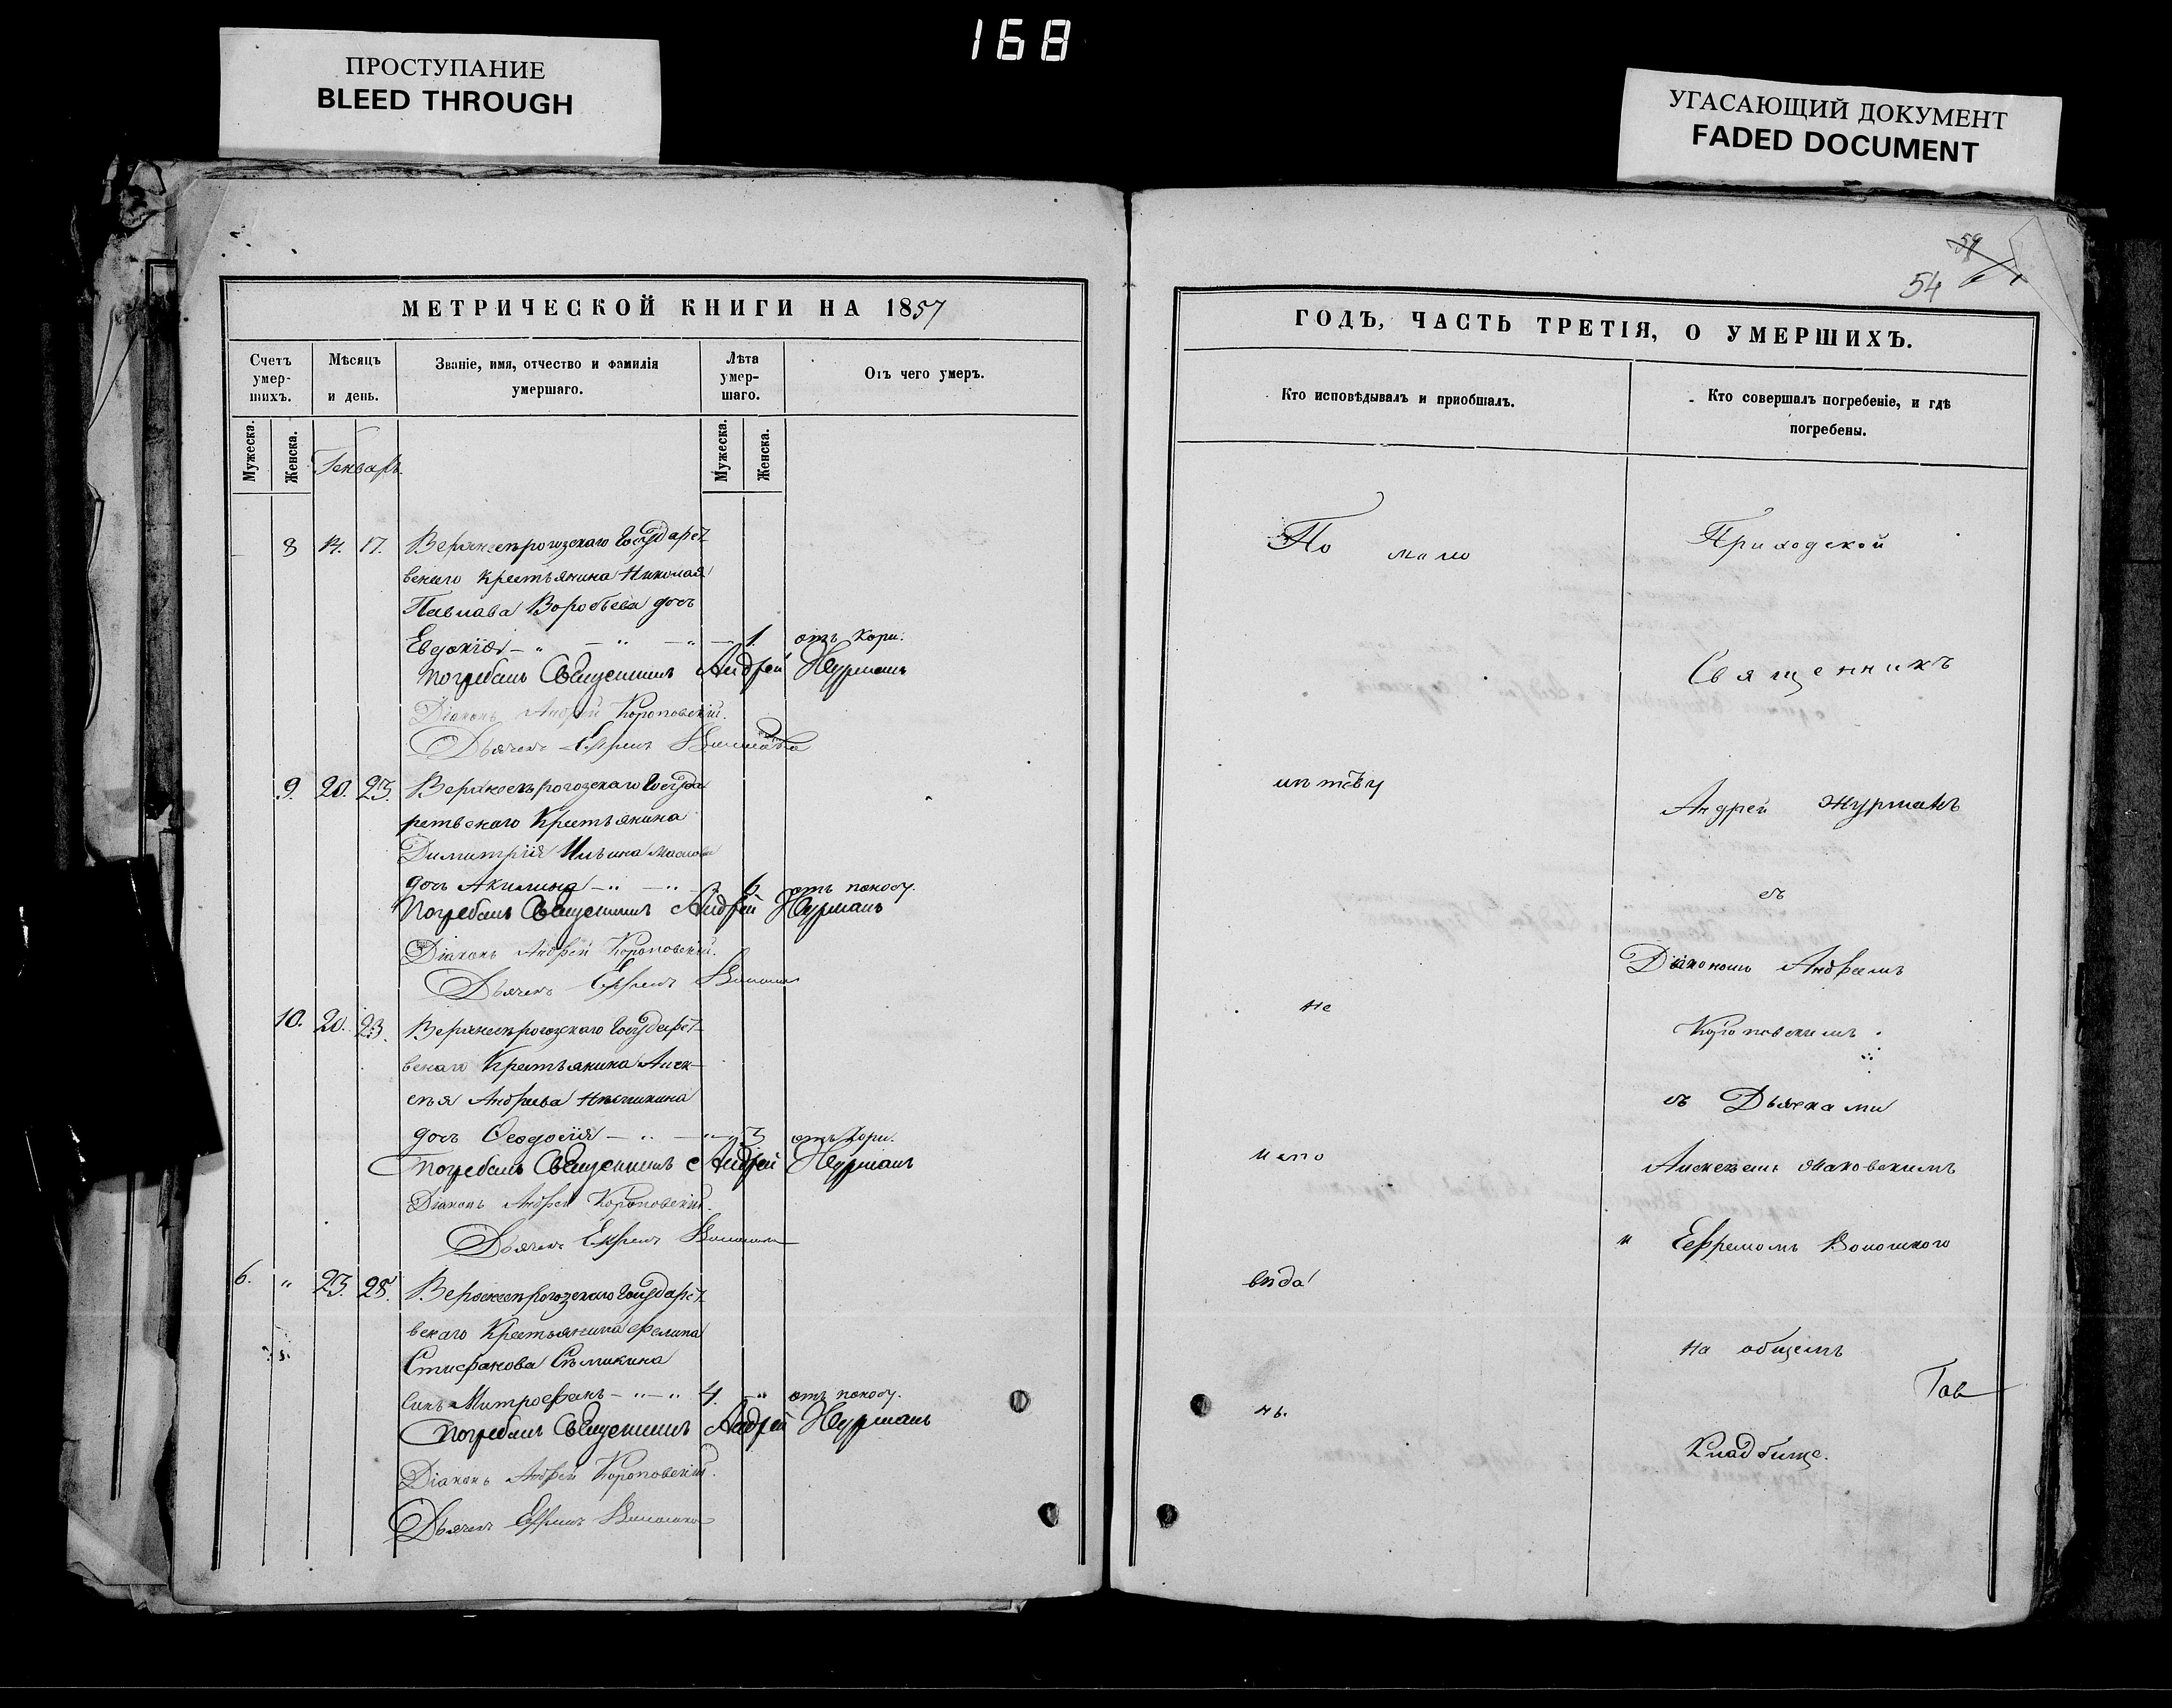 168
ПРОСТУПАНИЕ
BLEED THROUGH
УГАСАЮЩИЙ ДОКУМЕНТ
FADED DOCUMENT
МЕТРИЧЕСКОЙ КНИГИ НА 1857
Счетъ умер-шихъ.
Мѣсяцъ и день.
Званіе, имя, отчество и фамилія умершаго.
Лѣта умер-шаго.
Отъ чего умеръ.
Мужеска.
Женска.
Генварь
Мужеска.
Женска.
8 14. 17. Верхнесѣрогозскаго Государст-
венаго крестьянина Николая
Павлова Воробьева дочь
Евдокія 1. отъ кори.
Погребалъ Священникъ Андрей Журманъ
Діаконъ Андрей Короповскій.
Дьячекъ Ефремъ
9. 20. 23. Верхнесѣрогозскаго Госуда
рственаго Крестьянина
Димитрія Ильина
дочь Акилина 6. отъ поносу.
Погребалъ Священникъ Андрей Журманъ
Діаконъ Андрей Короповскій.
Дьячекъ Ефремъ
10. 20. 23. Верхнесѣрогозскаго Государст-
венаго Крестьянина Алек-
сѣя Андреева
дочь Ѳеодосія 3 отъ кори.
Погребалъ Священникъ Андрей Журманъ
Діаконъ Андрей Короповскій.
Дьячекъ Ефремъ
6. " 23. 28. Верхнесѣрогозскаго Государст-
венаго Крестьянина Филипа
Стефанова Сѣмикина
сынъ Митрофанъ 4. " отъ поносу.
Погребалъ Священникъ Андрей Журманъ
Діаконъ Андрей Короповскій.
Дьячекъ Ефремъ
54
ГОДЪ, ЧАСТЬ ТРЕТІЯ, О УМЕРШИХЪ.
Кто исповѣдывалъ и пріобщалъ.
Кто совершалъ погребеніе, и гдѣ погребены.
По мало
лѣтству
не
испо
вѣда
нъ.
Приходской
Священникъ
Андрей Журманъ
съ
Діакономъ Андреемъ
Короповскимъ
съ Дьячками
Алексѣемъ Маковскимъ
и Ефремомъ
на общемъ
Кладбище.